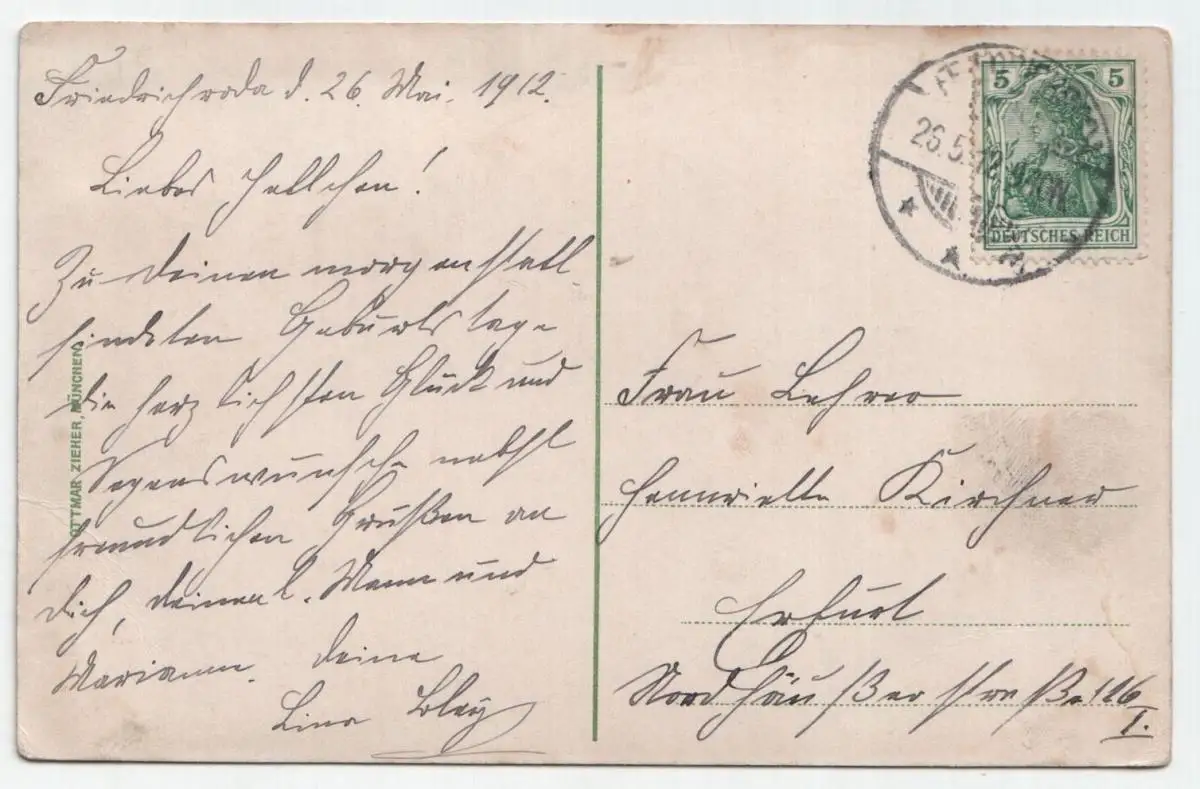 Friedrichroda d. 26. Mai. 1912.
Liebes Hellchen!
Zu deinen morgen statt
findeten Geburtstage
die herzlichsten Glück und
Segenswünsche nebst
freundlichen Grüßen an
dich, deinen l. Mann und
Marianne. deine
Lina Bley
OTTMAR ZIEHER, MÜNCHEN
5 5
DEUTSCHES REICH
26.5.12
Frau Lehrer
Hennriette Kirchner
Erfurt
Nordhäuserstraße 116
I.